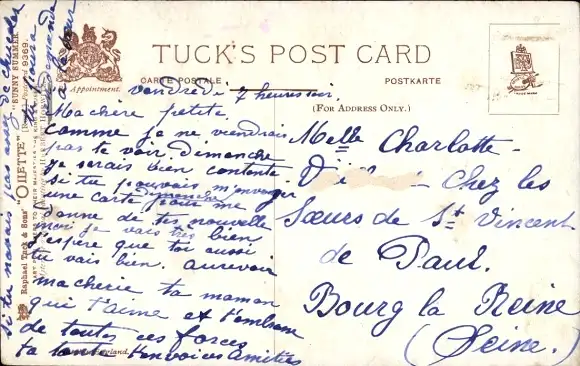 TUCK'S POST CARD
CARTE POSTALE
POSTKARTE
(FOR ADDRESS ONLY.)
Appointment.
Raphael Tuck & Sons' "OILETTE"
"SUNNY SUMMER."
9369.
vendredi 7 heures soir
Ma chère petite
comme je ne viendrais
pas te voir dimanche
je serais bien contente
si tu pouvais m'envoyer
une carte dimanche pour me
donne de tes nouvelle
moi je vais très bien
j'espère que toi aussi
tu vais bien. aurevoir
ma cherie ta maman
qui t'aime et t'embrasse
de toutes ces forces
ta tante t'envoi ces amitiés
si tu navais pas assez de chocolat
tu
Melle Charlotte
Chez les
Sœurs de St Vincent
de Paul.
Bourg la Reine
(Seine.)